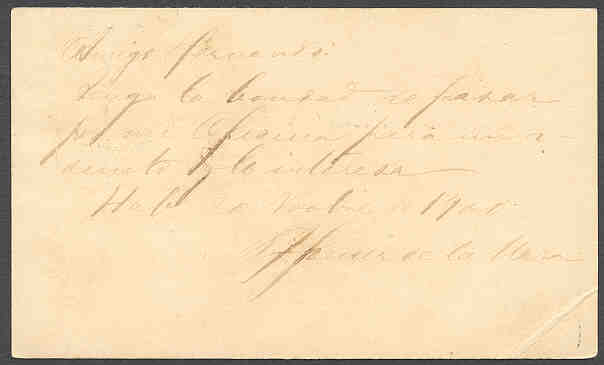 Amigo Fernando:
Tenga la bondad de pasar
por mi Oficina para un a-
sunto q le interesa
Hab 20 de 1905
de la